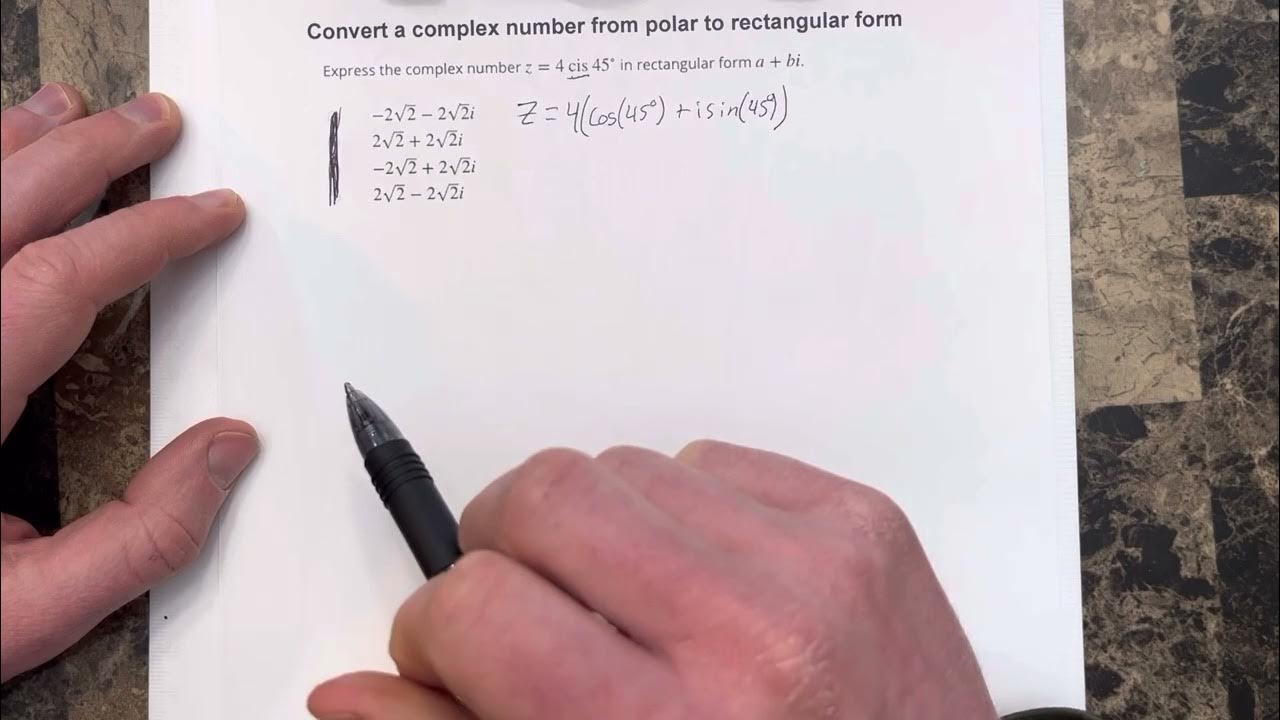 Convert a complex number from polar to rectangular form
Express the complex number z = 4 cis 45° in rectangular form a + bi.
−2√2 − 2√2i
Z = 4(cos(45°) + i sin(45°)
2√2 + 2√2i
−2√2 + 2√2i
2√2 − 2√2i